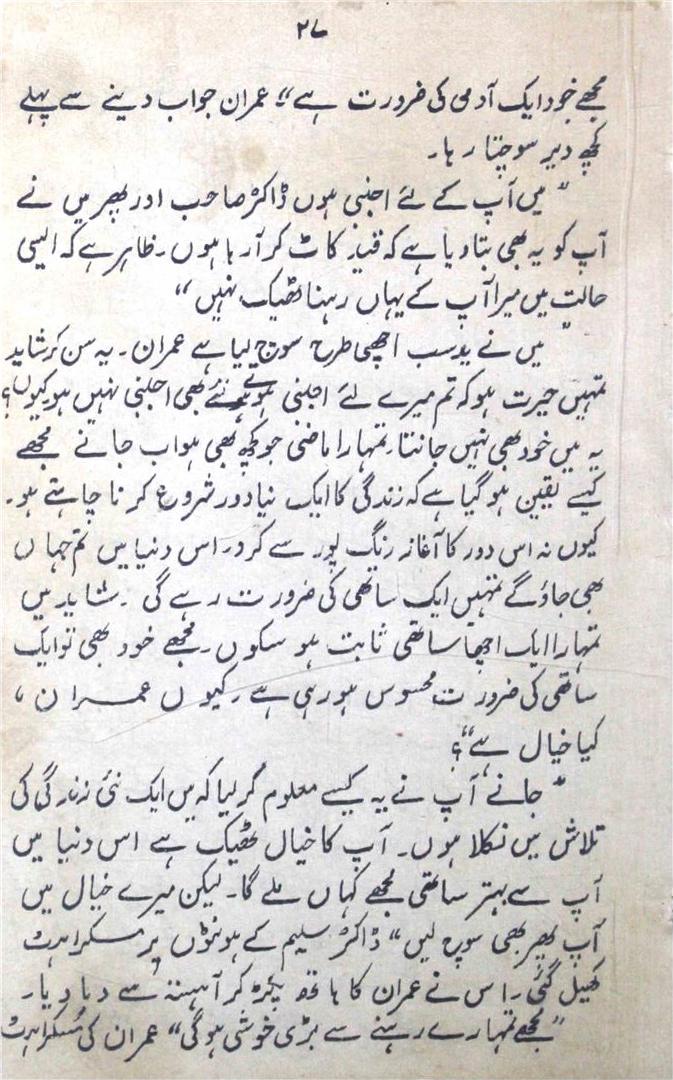 ۲۷
مجھے خود ایک آدمی کی ضرورت ہے“ عمران جواب دینے سے پہلے
کچھ دیر سوچتا رہا۔
”میں آپ کے لئے اجنبی ہوں ڈاکٹر صاحب اور پھر میں نے
آپ کو یہ بھی بتا دیا ہے کہ قید کاٹ کر آ رہا ہوں۔ ظاہر ہے کہ ایسی
حالت میں میرا آپ کے یہاں رہنا ٹھیک نہیں“
”میں نے یہ سب اچھی طرح سوچ لیا ہے عمران۔ یہ سن کر شاید
تمہیں حیرت ہو کہ تم میرے لئے اجنبی ہوتے ہوئے بھی اجنبی نہیں ہو کیوں؟
یہ میں خود بھی نہیں جانتا۔ تمہارا ماضی جو کچھ بھی ہو اب جانے مجھے
کیسے یقین ہو گیا ہے کہ زندگی کا ایک نیا دور شروع کرنا چاہتے ہو۔
کیوں نہ اس دور کا آغاز رنگ پور سے کرو۔ اس دنیا میں تم جہاں
بھی جاؤ گے تمہیں ایک ساتھی کی ضرورت رہے گی۔ شاید میں
تمہارا ایک اچھا ساتھی ثابت ہو سکوں۔ مجھے خود بھی تو ایک
ساتھی کی ضرورت محسوس ہو رہی ہے۔ کیوں عمران ،
کیا خیال ہے“؟
”جانے آپ نے یہ کیسے معلوم کر لیا کہ میں ایک نئی زندگی کی
تلاش میں نکلا ہوں۔ آپ کا خیال ٹھیک ہے اس دنیا میں
آپ سے بہتر ساتھی مجھے کہاں ملے گا۔ لیکن میرے خیال میں
آپ پھر بھی سوچ لیں“ ڈاکٹر سلیم کے ہونٹوں پر مسکراہٹ
کھیل گئی۔ اس نے عمران کا ہاتھ پکڑ کر آہستہ سے دبا دیا۔
”مجھے تمہارے رہنے سے بڑی خوشی ہو گی“ عمران کی مسکراہٹ